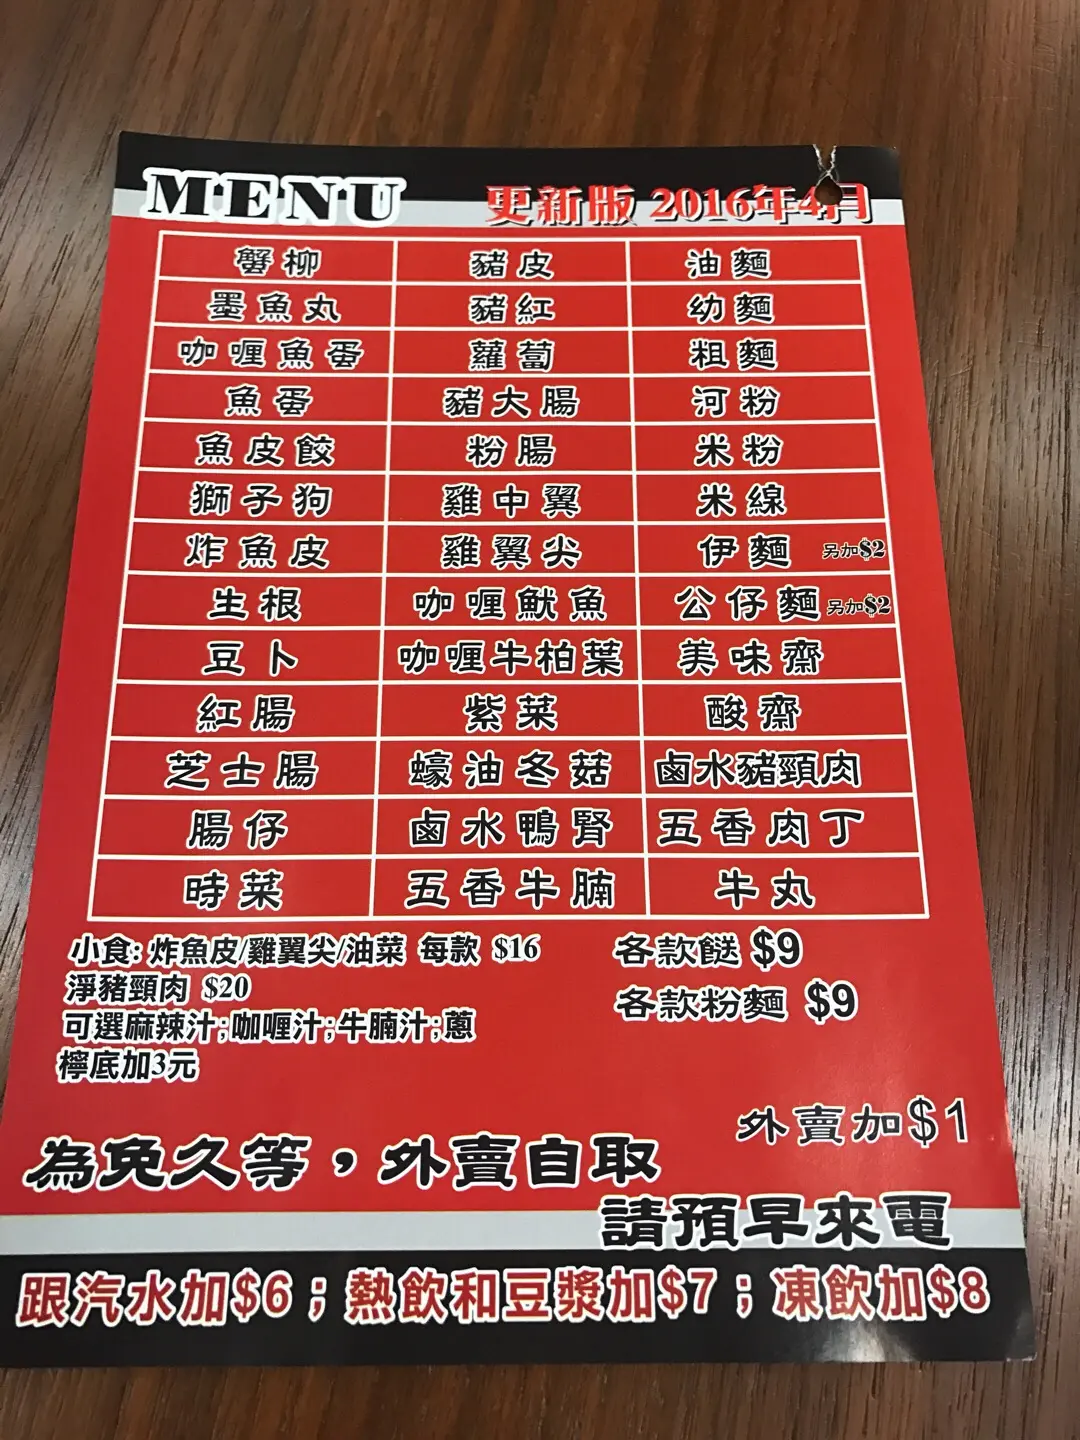 MENU 更新版 2016年4月
蟹柳 豬皮 油麵
墨魚丸 豬紅 幼麵
咖喱魚蛋 蘿蔔 粗麵
魚蛋 豬大腸 河粉
魚皮餃 粉腸 米粉
獅子狗 雞中翼 米線
炸魚皮 雞翼尖 伊麵 另加$2
生根 咖喱魷魚 公仔麵 另加$2
豆卜 咖喱牛柏葉 美味齋
紅腸 紫菜 酸齋
芝士腸 蠔油冬菇 鹵水豬頸肉
腸仔 鹵水鴨腎 五香肉丁
時菜 五香牛腩 牛丸
小食: 炸魚皮/雞翼尖/油菜 每款 $16
淨豬頸肉 $20
可選麻辣汁;咖喱汁;牛腩汁;蔥
檸底加3元
各款餸 $9
各款粉麵 $9
外賣加$1
為免久等，外賣自取
請預早來電
跟汽水加$6；熱飲和豆漿加$7；凍飲加$8